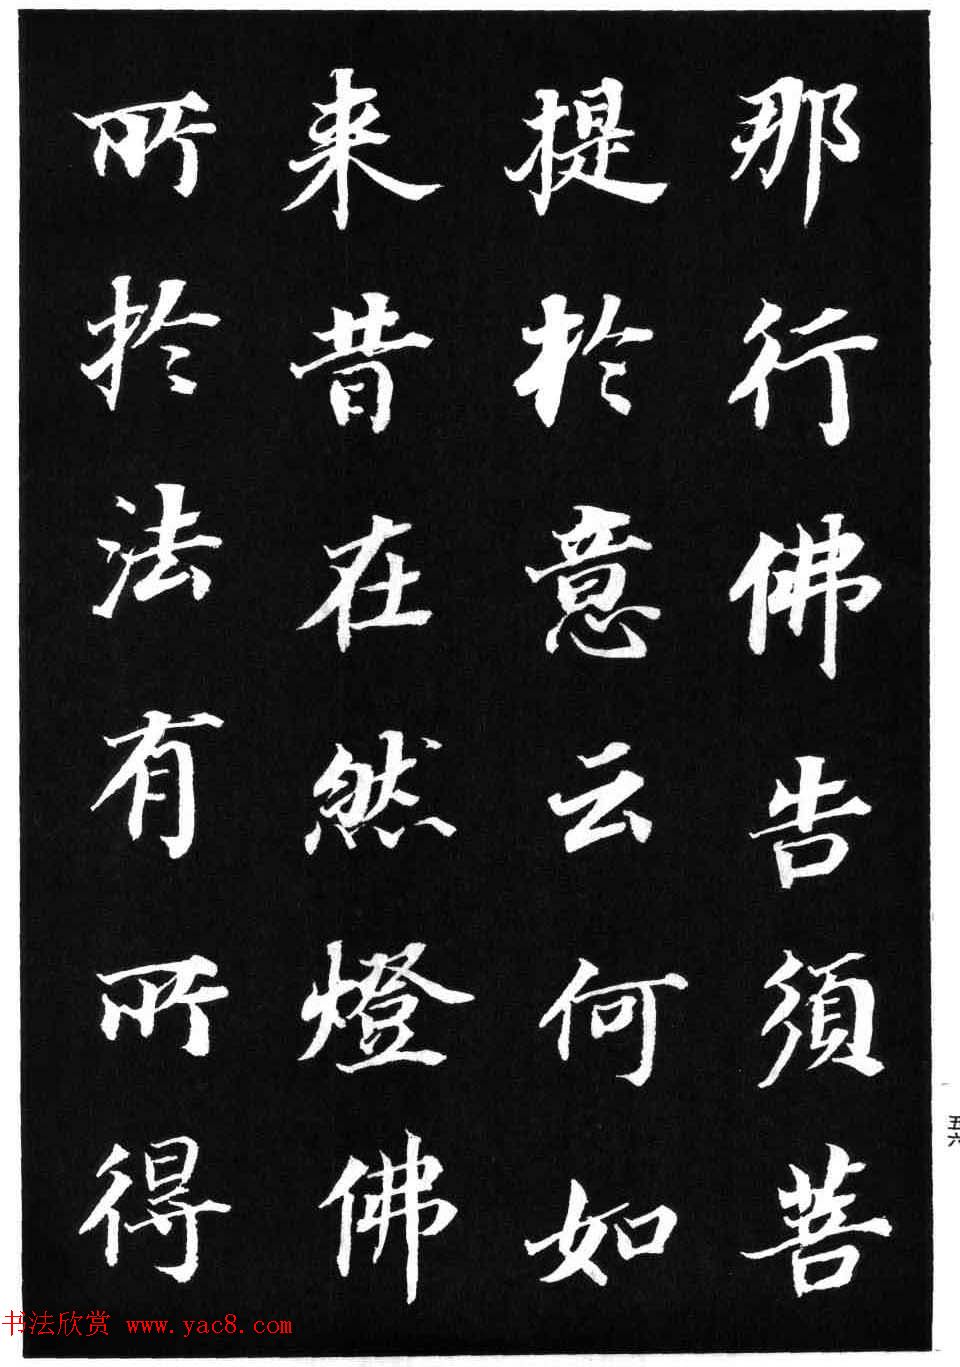 那行佛告須菩
提於意云何如
来昔在然燈佛
所於法有所得
五六
书法欣赏 www.yac8.com